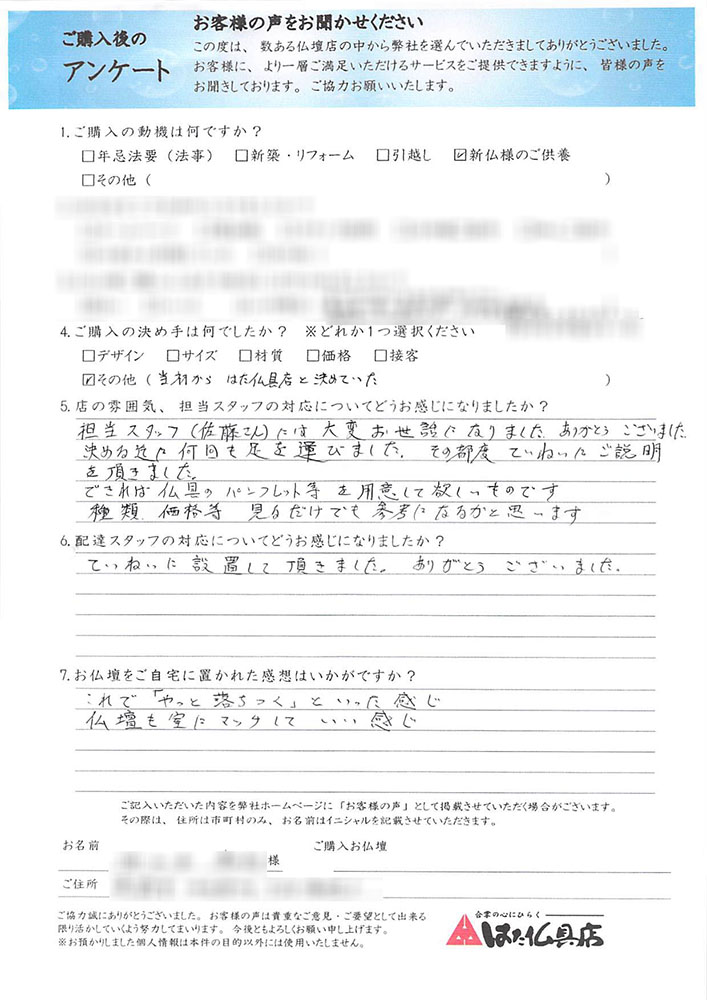 ご購入後の
アンケート
お客様の声をお聞かせください
この度は、数ある仏壇店の中から弊社を選んでいただきましてありがとうございました。
お客様に、より一層ご満足いただけるサービスをご提供できますように、皆様の声を
お聞きしております。ご協力お願いいたします。
1.ご購入の動機は何ですか？
□年忌法要（法事） □新築・リフォーム □引越し ☑新仏様のご供養
□その他（ ）
4.ご購入の決め手は何でしたか？ ※どれか1つ選択ください
□デザイン □サイズ □材質 □価格 □接客
☑その他（当初から はた仏具店と決めていた ）
5.店の雰囲気、担当スタッフの対応についてどうお感じになりましたか？
担当スタッフ(佐藤さん)には大変お世話になりました ありがとうございました
決める迄に何回も足を運びました. その都度 ていねいにご説明
を頂きました。
できれば仏具のパンフレット等を用意して欲しいものです
種類 価格等 見るだけでも参考になるかと思います
6.配達スタッフの対応についてどうお感じになりましたか？
ていねいに設置して頂きました。ありがとうございました.
7.お仏壇をご自宅に置かれた感想はいかがですか？
これで「やっと落ちつく」といった感じ
仏壇も室にマッチして いい感じ
ご記入いただいた内容を弊社ホームページに「お客様の声」として掲載させていただく場合がございます。
その際は、住所は市町村のみ、お名前はイニシャルを記載させていただきます。
お名前 様 ご購入お仏壇
ご住所
ご協力誠にありがとうございました。お客様の声は貴重なご意見・ご要望として出来る
限り活かしていくよう努力してまいります。今後ともよろしくお願い申し上げます。
※お預かりしました個人情報は本件の目的以外には使用いたしません。
合掌の心にひらく
はた仏具店